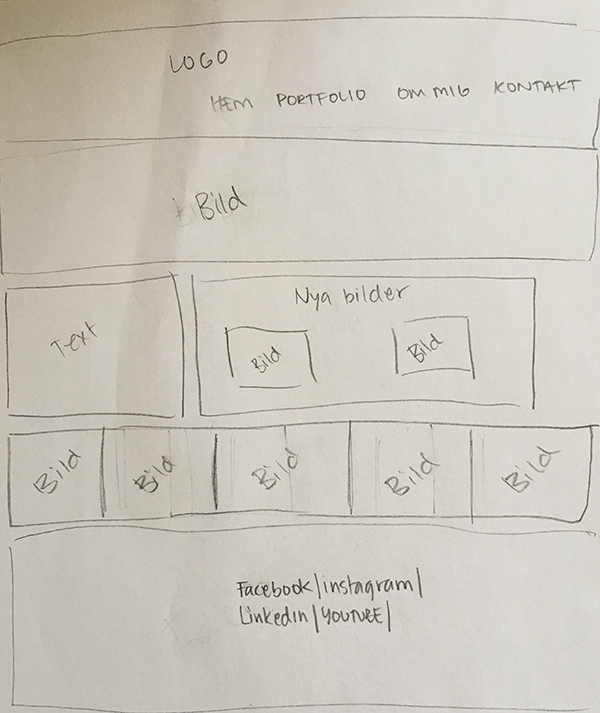 LOGO
HEM PORTFOLIO OM MIG KONTAKT
Bild
Nya bilder
Text
Bild Bild
Bild Bild Bild Bild Bild
Facebook/instagram/
Linkedin/YOUTUBE/